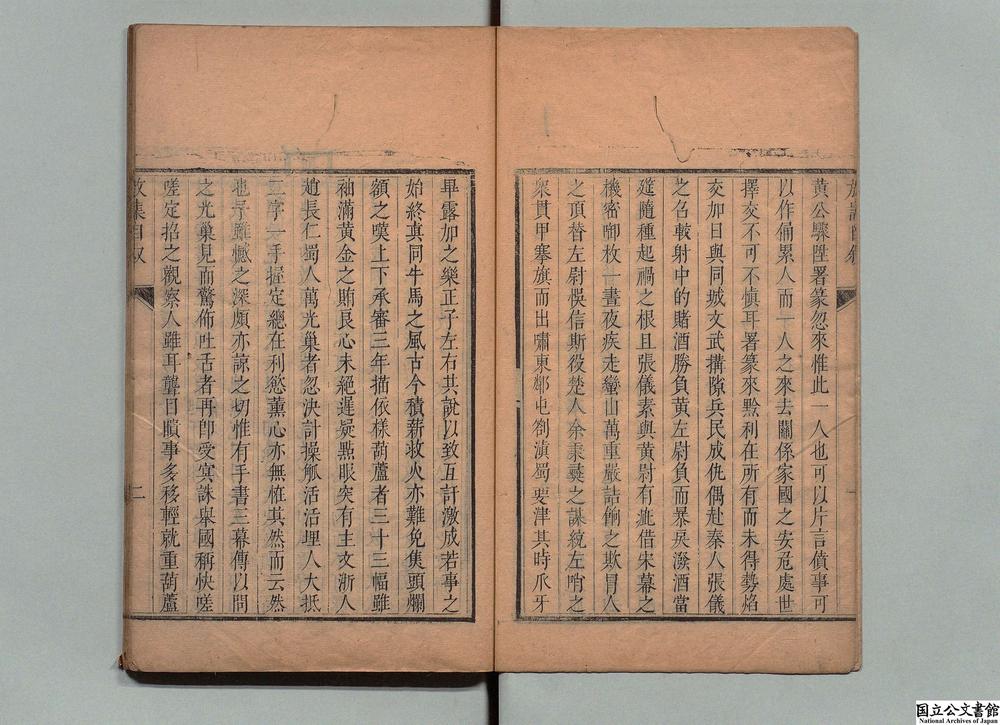 黃公驟陞署篆忽來惟此一人也可以片言僨事可
以作俑累人而一人之來去關係家國之安危處世
擇交不可不慎耳署篆來黔利在所有而未得勢焰
交加日與同城文武搆隙兵民成仇偶赴秦人張儀
之召較射中的賭酒勝負黃左尉負而暴戾潑酒當
筵隨種起禍之根且張儀素與黃尉有疵借宋幕之
機密啣枚一晝夜疾走蠻山萬重嚴詰餉之欺冒人
之頂替左尉悞信斯役楚人余秉彝之謀統左哨之
眾貫甲搴旗而出嘯東鄰屯劄滇蜀要津其時爪牙
畢露加之樂正子左右其說以致五訐激成若事之
始終真同牛馬之風古今積薪救火亦難免焦頭爛
額之嘆上下承審三年描依樣葫蘆者三十三幅雖
袖滿黃金之賄良心未絕遲疑點眼突有主文浙人
趙長仁蜀人萬光巢者忽決計操觚活活埋人大抵
二字一手握定總在利慾薰心亦無恠其然而云然
也予雖憾之深頗亦諒之切惟有手書三幕傳以問
之光巢見而驚佈吐舌者再卽受㝠誅舉國稱快嗟
嗟定招之觀察人雖耳聾目瞶事多移輕就重葫蘆
集自叙
二